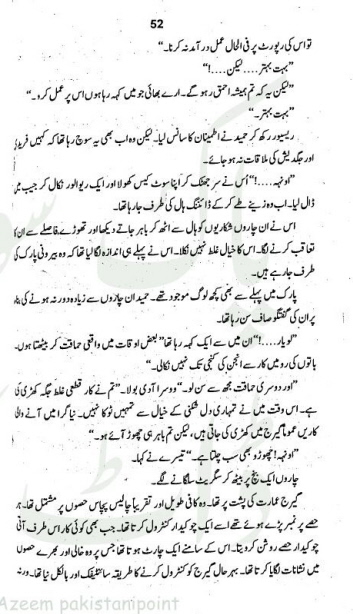 52
تو اس کی رپورٹ پر فی الحال عمل درآمد نہ کرنا۔"
"بہت بہتر.... لیکن....!"
"لیکن یہ کہ تم ہمیشہ احمق رہو گے۔ ارے بھائی جو میں کہہ رہا ہوں اس پر عمل کرو۔"
"بہت بہتر۔"
ریسیور رکھ کر حمید نے اطمینان کا سانس لیا۔ لیکن وہ اب بھی یہ سوچ رہا تھا کہ کہیں فریدی
اور جگدیش کی ملاقات نہ ہو جائے۔
"اونہہ....!" اُس نے سر جھٹک کر اپنا سوٹ کیس کھولا اور ایک ریوالور نکال کر جیب میں
ڈال لیا۔ اب وہ زینے طے کر کے ڈائننگ ہال کی طرف جا رہا تھا۔
اس نے ان چاروں شکاریوں کو ہال سے اٹھ کر باہر جاتے دیکھا اور تھوڑے فاصلے سے ان کا
تعاقب کرنے لگا۔ اس کا خیال غلط نہیں نکلا۔ اس نے پہلے ہی اندازہ لگا لیا تھا کہ وہ بیرونی پارک کی
طرف جا رہے ہیں۔
پارک میں پہلے سے بھی کچھ لوگ موجود تھے۔ حمید ان چاروں سے زیادہ دور نہ ہونے کی بناء
پر ان کی گفتگو صاف سن رہا تھا۔
"لو یار....!" ان میں سے ایک کہہ رہا تھا "بعض اوقات میں واقعی حماقت کر بیٹھتا ہوں۔
باتوں کی رو میں کار سے انجن کی کنجی تک نہیں نکالی۔"
"اور دوسری حماقت مجھ سے سن لو۔" دوسرا آدمی بولا۔ "تم نے کار قطعی غلط جگہ کھڑی کی
ہے۔ اس وقت میں نے تمہاری دل شکنی کے خیال سے تمہیں ٹوکا نہیں۔ نیاگرا میں آنے والی
کاریں عموماً گیرج میں کھڑی کی جاتی ہیں، لیکن تم باہر ہی چھوڑ آئے ہو۔"
"اونہہ! چھوڑو بھی سب چلتا ہے۔" تیسرے نے کہا۔
چاروں ایک بنچ پر بیٹھ کر سگریٹ سلگانے لگے۔
گیرج عمارت کی پشت پر تھا۔ وہ کافی طویل اور تقریباً چالیس پچپاس حصوں پر مشتمل تھا۔ ہر
حصے پر نمبر پڑے ہوئے تھے اسے ایک چوکیدار کنٹرول کرتا تھا۔ جب بھی کوئی کار اس طرف آتی
چوکیدار حصے روشن کر دیتا۔ اس کے سامنے ایک چارٹ ہوتا تھا جس پر وہ خالی اور بھرے حصوں
میں نشانات لگایا کرتا تھا۔ بہر حال گیرج کو کنٹرول کرنے کا طریقہ سائنٹیفک اور بالکل نیا تھا۔ ورنہ
Azeem pakistanipoint